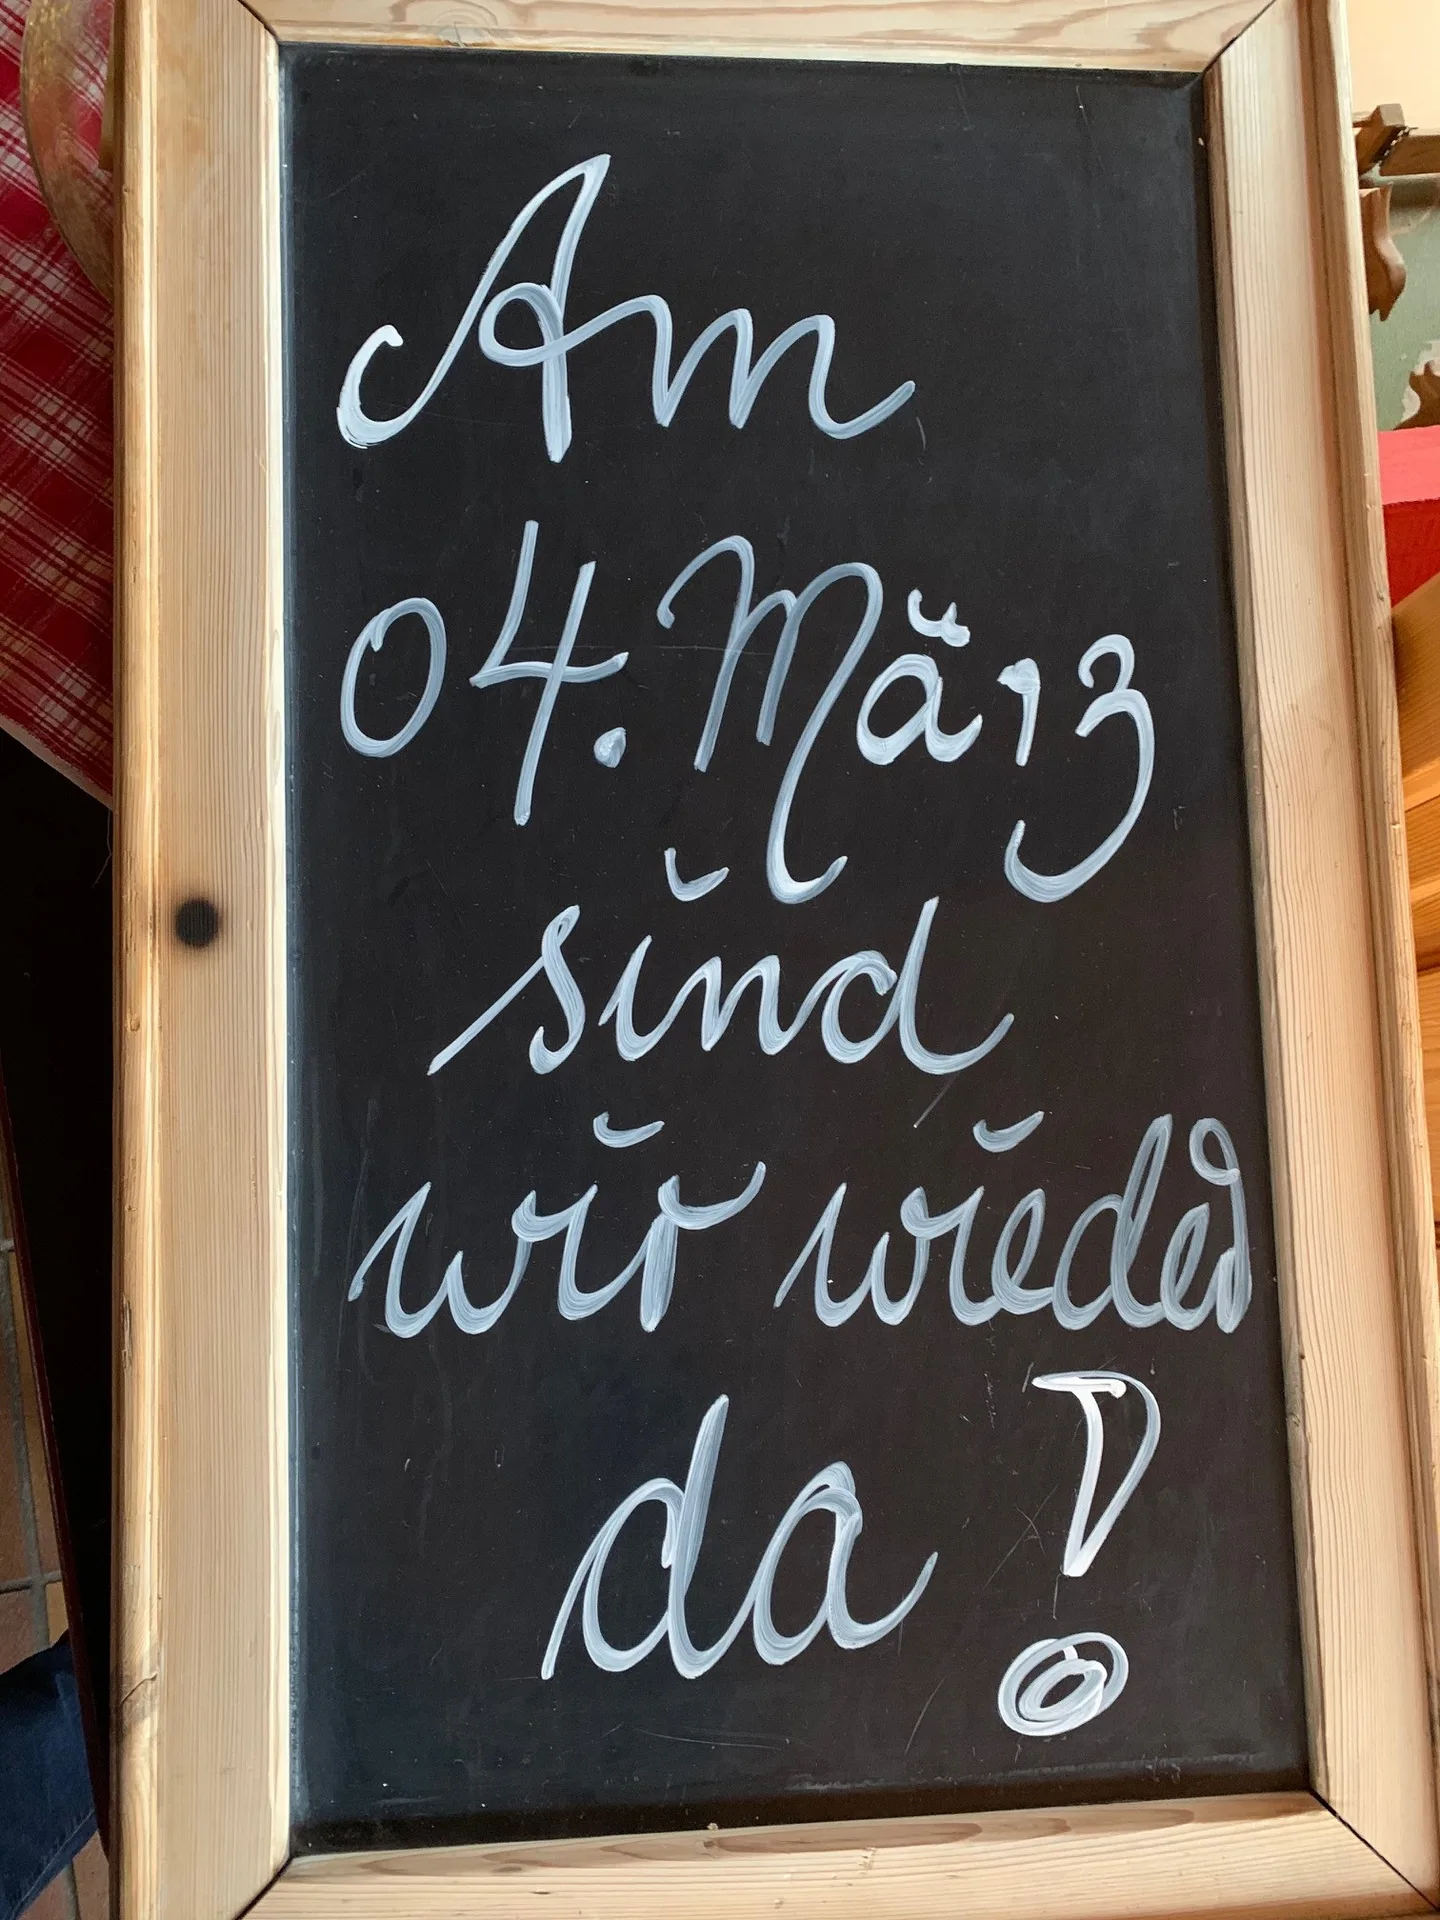 Am
04. März
sind
wir wieder
da!